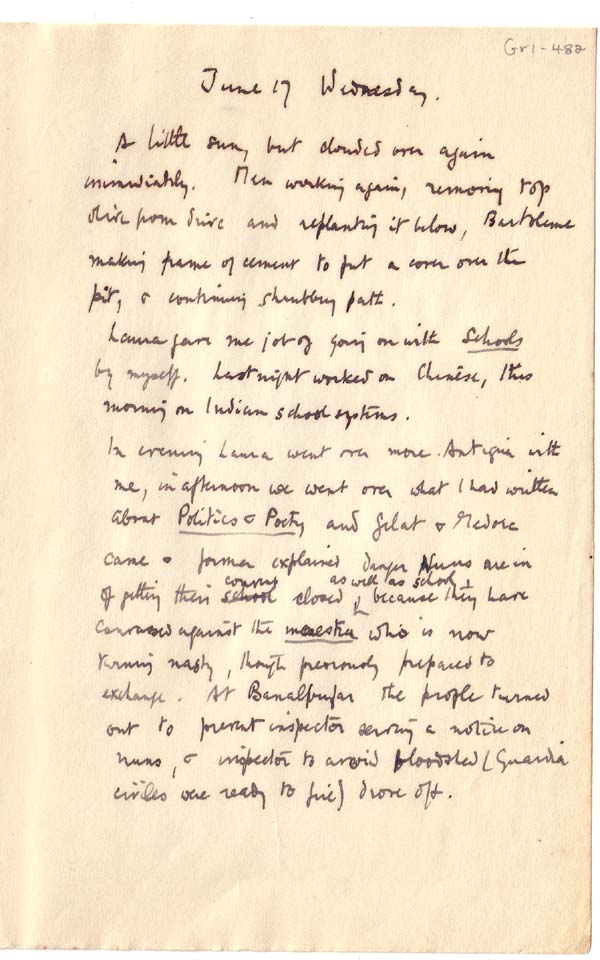 Gr1-482
June 17 Wednesday.
A little sun, but clouded over again
immediately. Men working again, removing top
olive from drive and replanting it below, Bartolome
making frame of cement to put a cover over the
pit, & continuing shrubbery path.
Laura gave me job of going on with Schools
by myself. Last night worked on Chinese, this
morning on Indian school systems.
In evening Laura went over more Antigua with
me, in afternoon we went over what I had written
about Politics & Poetry and Gelat & Medora
came & former explained danger Nuns are in
convent as well as school
of getting their school closed, because they have
canvassed against the maestra who is now
turning nasty, though previously prepared to
exchange. At Banalbufar the people turned
out to prevent inspector serving a notice on
nuns, & inspector to avoid bloodshed (Guardia
civiles were ready to fire) drove off.